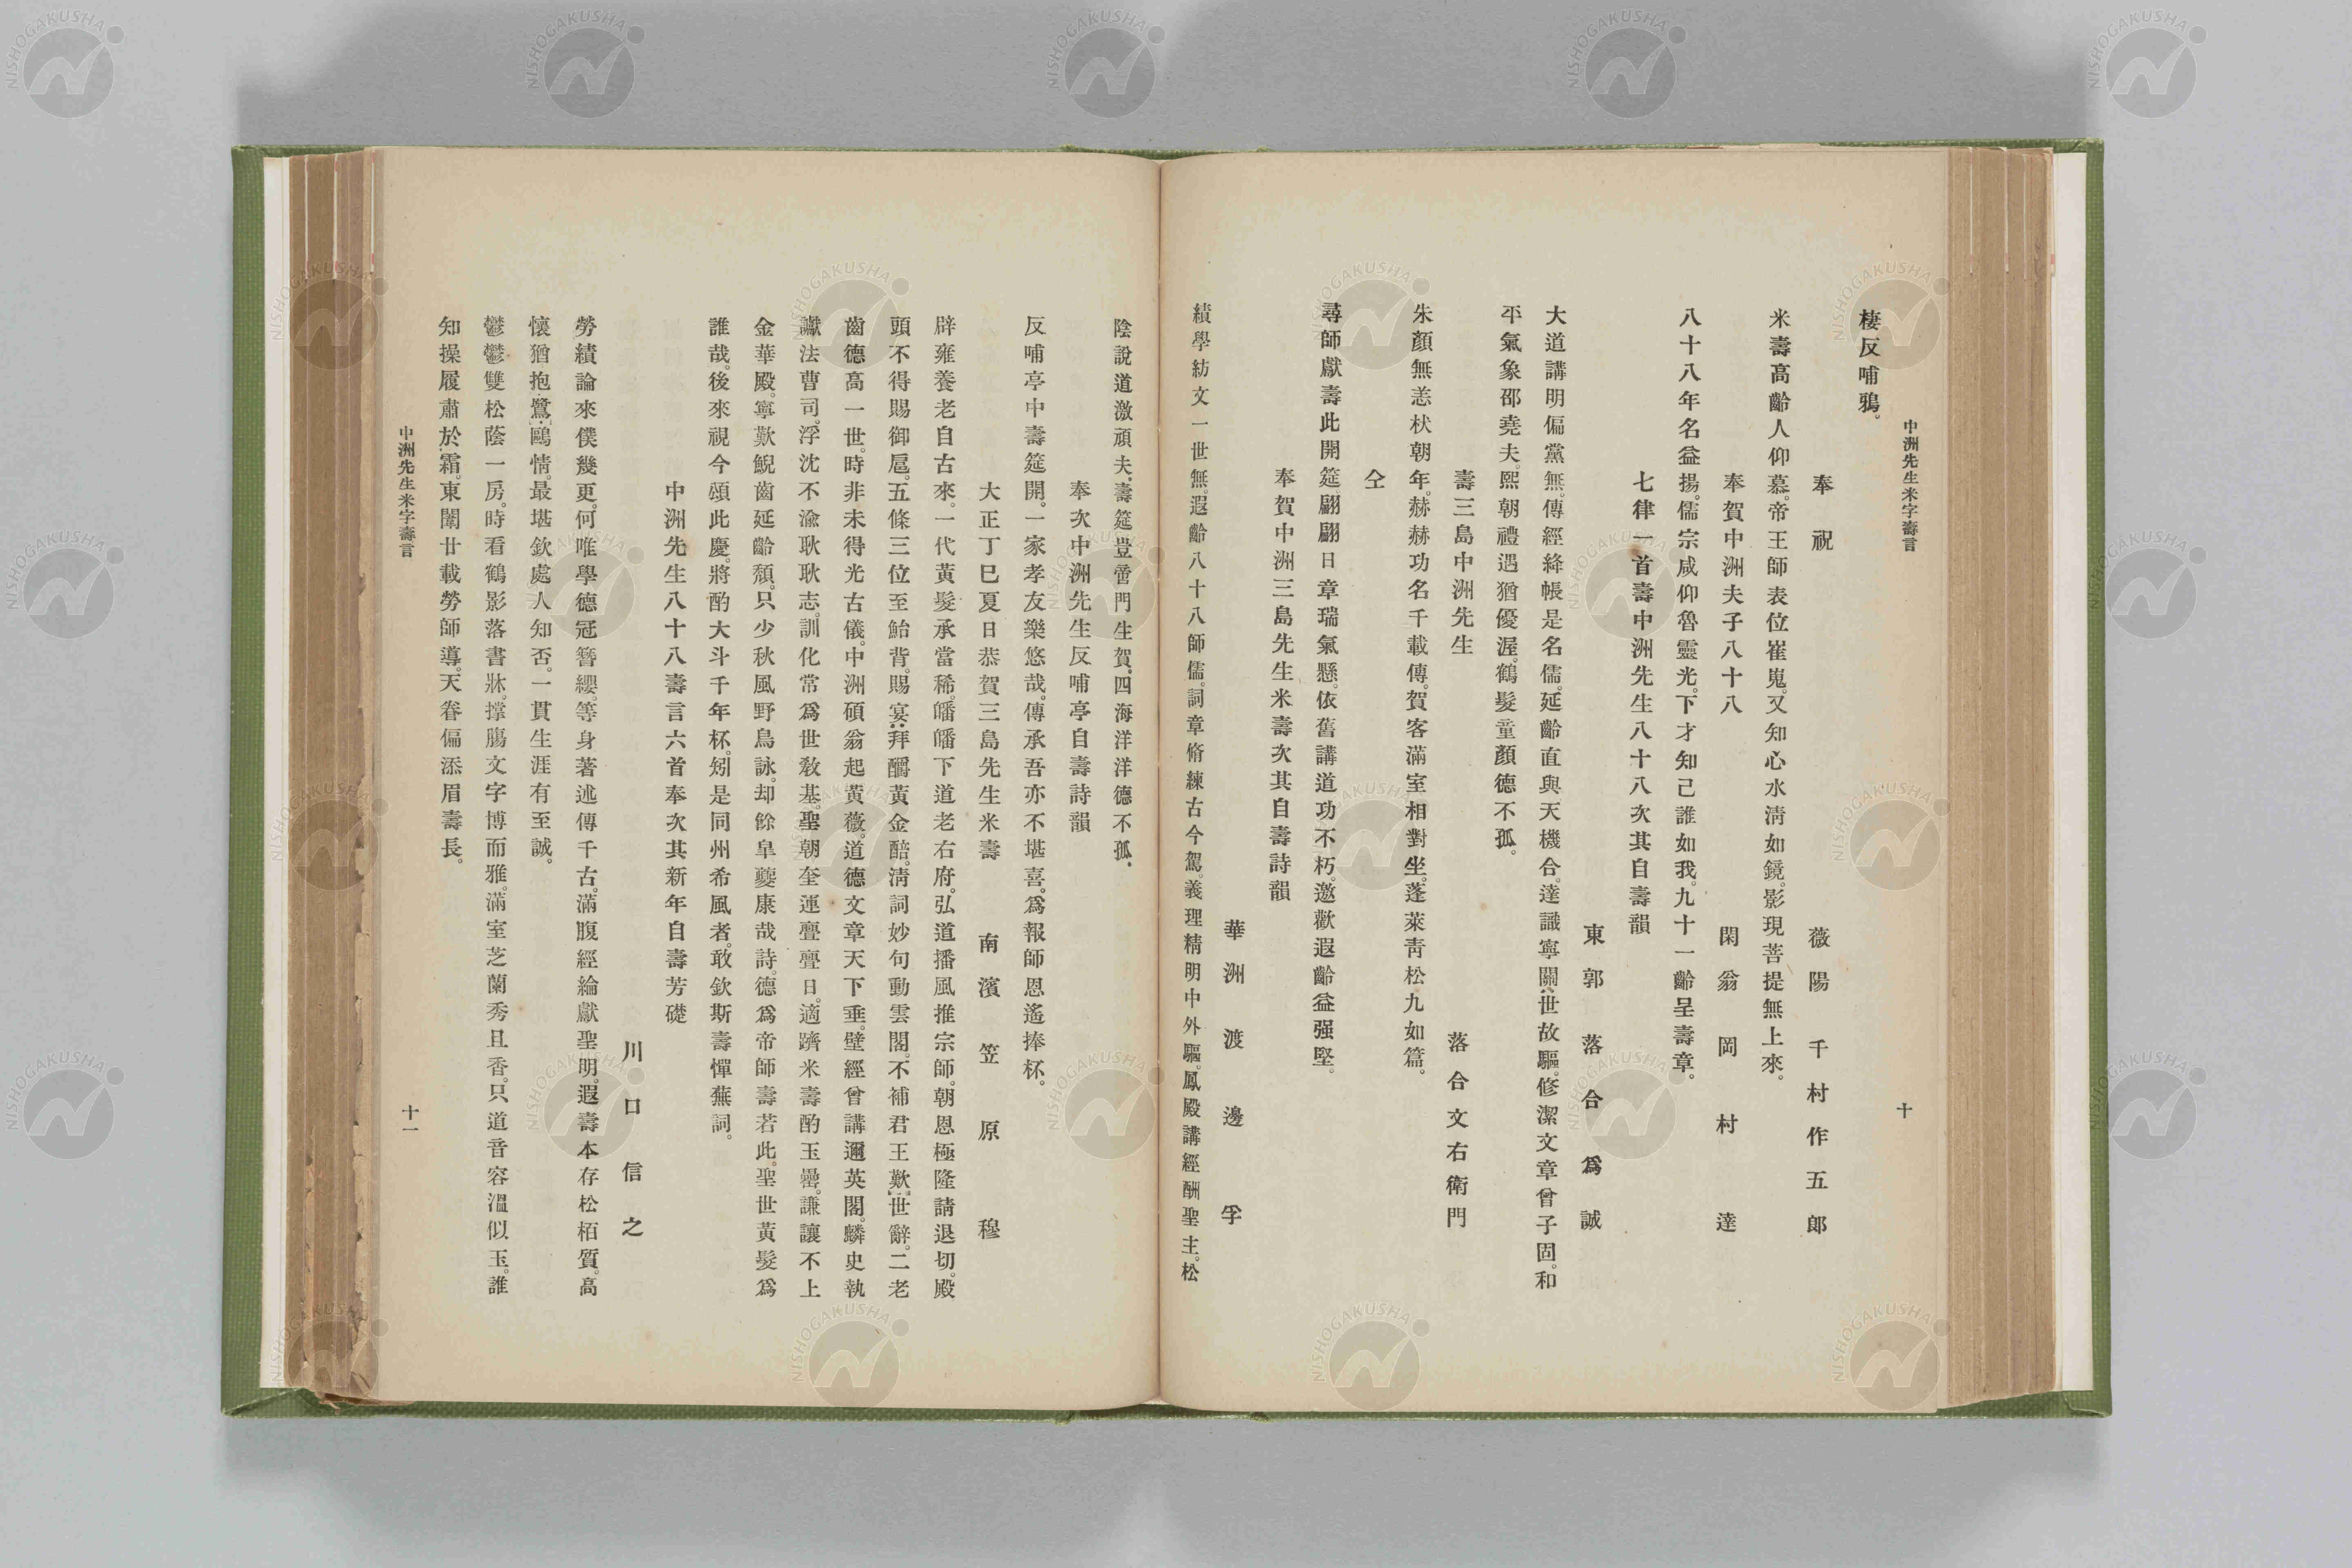 中洲先生米字壽言
十
棲反哺鴉。
奉祝
薇陽 千村作五郎
米壽高齡人仰慕。帝王師表位崔嵬。又知心水淸如鏡。影現菩提無上來。
奉賀中洲夫子八十八
閑翁 岡村 達
八十八年名益揚。儒宗咸仰魯靈光。下才知己誰如我。九十一齡呈壽章。
七律一首壽中洲先生八十八次其自壽韻
東郭 落合爲誠
大道講明偏黨無。傳經絳帳是名儒。延齡直與天機合。達識寧關世故驅。修潔文章曾子固。和
平氣象邵堯夫。熙朝禮遇猶優渥。鶴髮童顏德不孤。
壽三島中洲先生
落合文右衛門
朱顏無恙杖朝年。赫赫功名千載傳。賀客滿室相對坐。蓬萊靑松九如篇。
仝
尋師獻壽此開筵。翩翩日章瑞氣懸。依舊講道功不朽。邀歡遐齡益强堅。
奉賀中洲三島先生米壽次其自壽詩韻
華洲 渡邊 孚
績學紡文一世無。遐齡八十八師儒。詞章脩練古今駕。義理精明中外驅。鳳殿講經酬聖主。松
陰說道激頑夫。壽筵豈啻門生賀。四海洋洋德不孤。
奉次中洲先生反哺亭自壽詩韻
反哺亭中壽筵開。一家孝友樂悠哉。傳承吾亦不堪喜。爲報師恩遙捧杯。
大正丁巳夏日恭賀三島先生米壽
南濱 笠原 穆
辟雍養老自古來。一代黃髮承當稀。皤皤下道老右府。弘道播風推宗師。朝恩極隆請退切。殿
頭不得賜御扈。五條三位至鮐背。賜宴拜釂黃金醅。淸詞妙句動雲閣。不補君王歎世辭。二老
齒德高一世。時非未得光古儀。中洲碩翁起黃薇。道德文章天下垂。壁經曾講邇英閣。麟史執
讞法曹司。浮沈不渝耿耿志。訓化常爲世敎基。聖朝奎運亹亹日。適躋米壽酌玉罍。謙讓不上
金華殿。寧歎鯢齒延齡頹。只少秋風野鳥詠。却餘皐夔康哉詩。德爲帝師壽若此。聖世黃髮爲
誰哉。後來視今頌此慶。將酌大斗千年杯。矧是同州希風者。敢欽斯壽憚蕪詞。
中洲先生八十八壽言六首奉次其新年自壽芳礎
川口信之
勞績論來僕幾更。何唯學德冠簪纓。等身著述傳千古。滿腹經綸獻聖明。遐壽本存松栢質。高
懷猶抱鷺鷗情。最堪欽處人知否。一貫生涯有至誠。
鬱鬱雙松蔭一房。時看鶴影落書牀。撑膓文字博而雅。滿室芝蘭秀且香。只道音容溫似玉。誰
知操履肅於霜。東闈廿載勞師導。天眷偏添眉壽長。
中洲先生米字壽言
十一